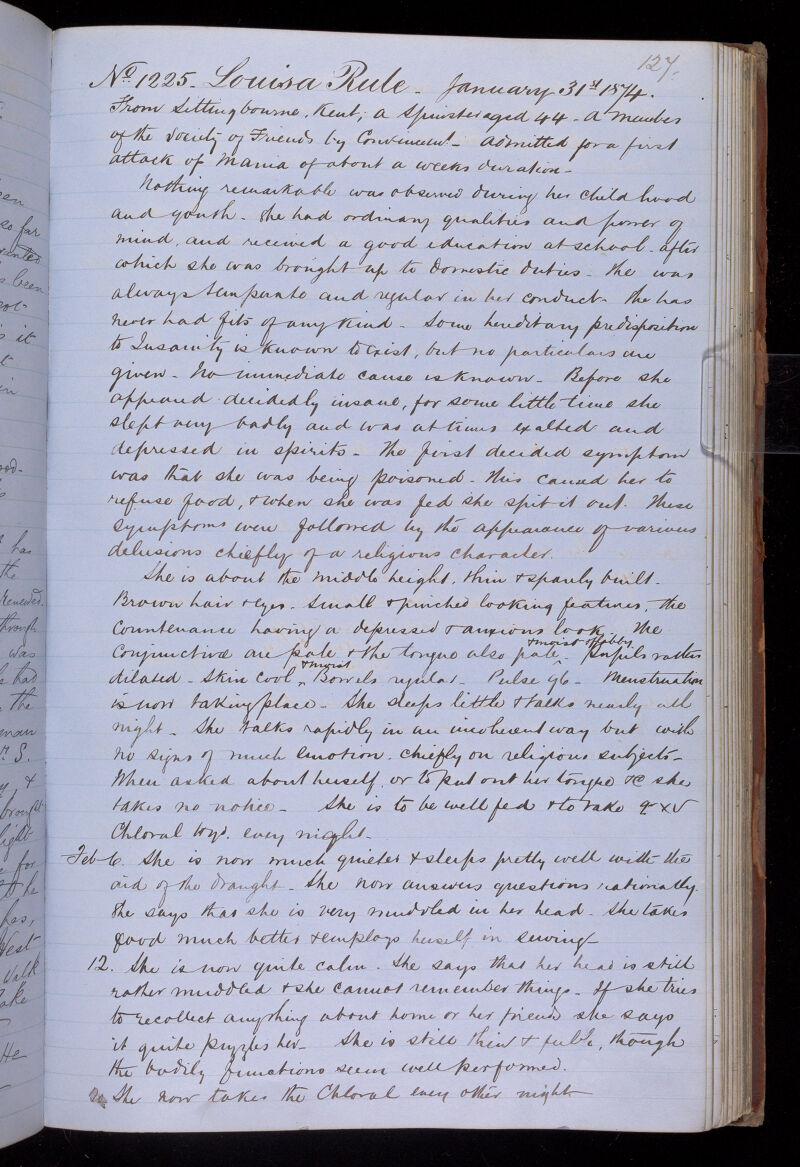 127.
No. 1225. Louisa Rule. January 31st 1874.
From Sittingbourne, Kent, a Spinster aged 44. A member
of the Society of Friends by Convincement. Admitted for a first
attack of Mania of about a weeks duration.
Nothing remarkable was observed during her childhood
and youth. She had ordinary qualities and power of
mind, and received a good education at school. after
which she was brought up to domestic duties. She was
always temperate and regular in her conduct. She has
never had fits of any kind. Some hereditary predisposition
to Insanity is known to exist, but no particulars are
given. No immediate cause is known. Before she
appeared decidedly insane, for some little time she
slept very badly and was at times exalted and
depressed in spirits. The first decided symptom
was that she was being poisoned. This caused her to
refuse food, & when she was fed she spit it out. These
symptoms were followed by the appearance of various
delusions chiefly of a religious character.
She is about the middle height, thin & sparely built.
Brown hair & eyes. Small & pinched looking features, the
Countenance having a depressed & anxious look. The
Conjunctivæ are pale & the tongue also pale & moist & flabby. Pupils rather
dilated. Skin cool & moist. Bowels regular. Pulse 96. Menstruation
is now taking place. She sleeps little & talks nearly all
night. She talks rapidly in an incoherent way but with
no signs of much emotion. chiefly on religious subjects.
When asked about herself, or to put out her tongue &c she
takes no notice. She is to be well fed & to take gr xv
Chloral Hyd. every night.
Feb 6. She is now much quieter & sleeps pretty well with the
aid of the draught. She now answers questions rationally.
She says that she is very muddled in her head. She takes
food much better & employs herself in sewing.
12. She is now quite calm. She says that her head is still
rather muddled & she cannot remember things. If she tries
to recollect anything about home or her friends she says
it quite puzzles her. She is still thin & feeble, though
the bodily functions seem well performed.
She now takes the Chloral every other night